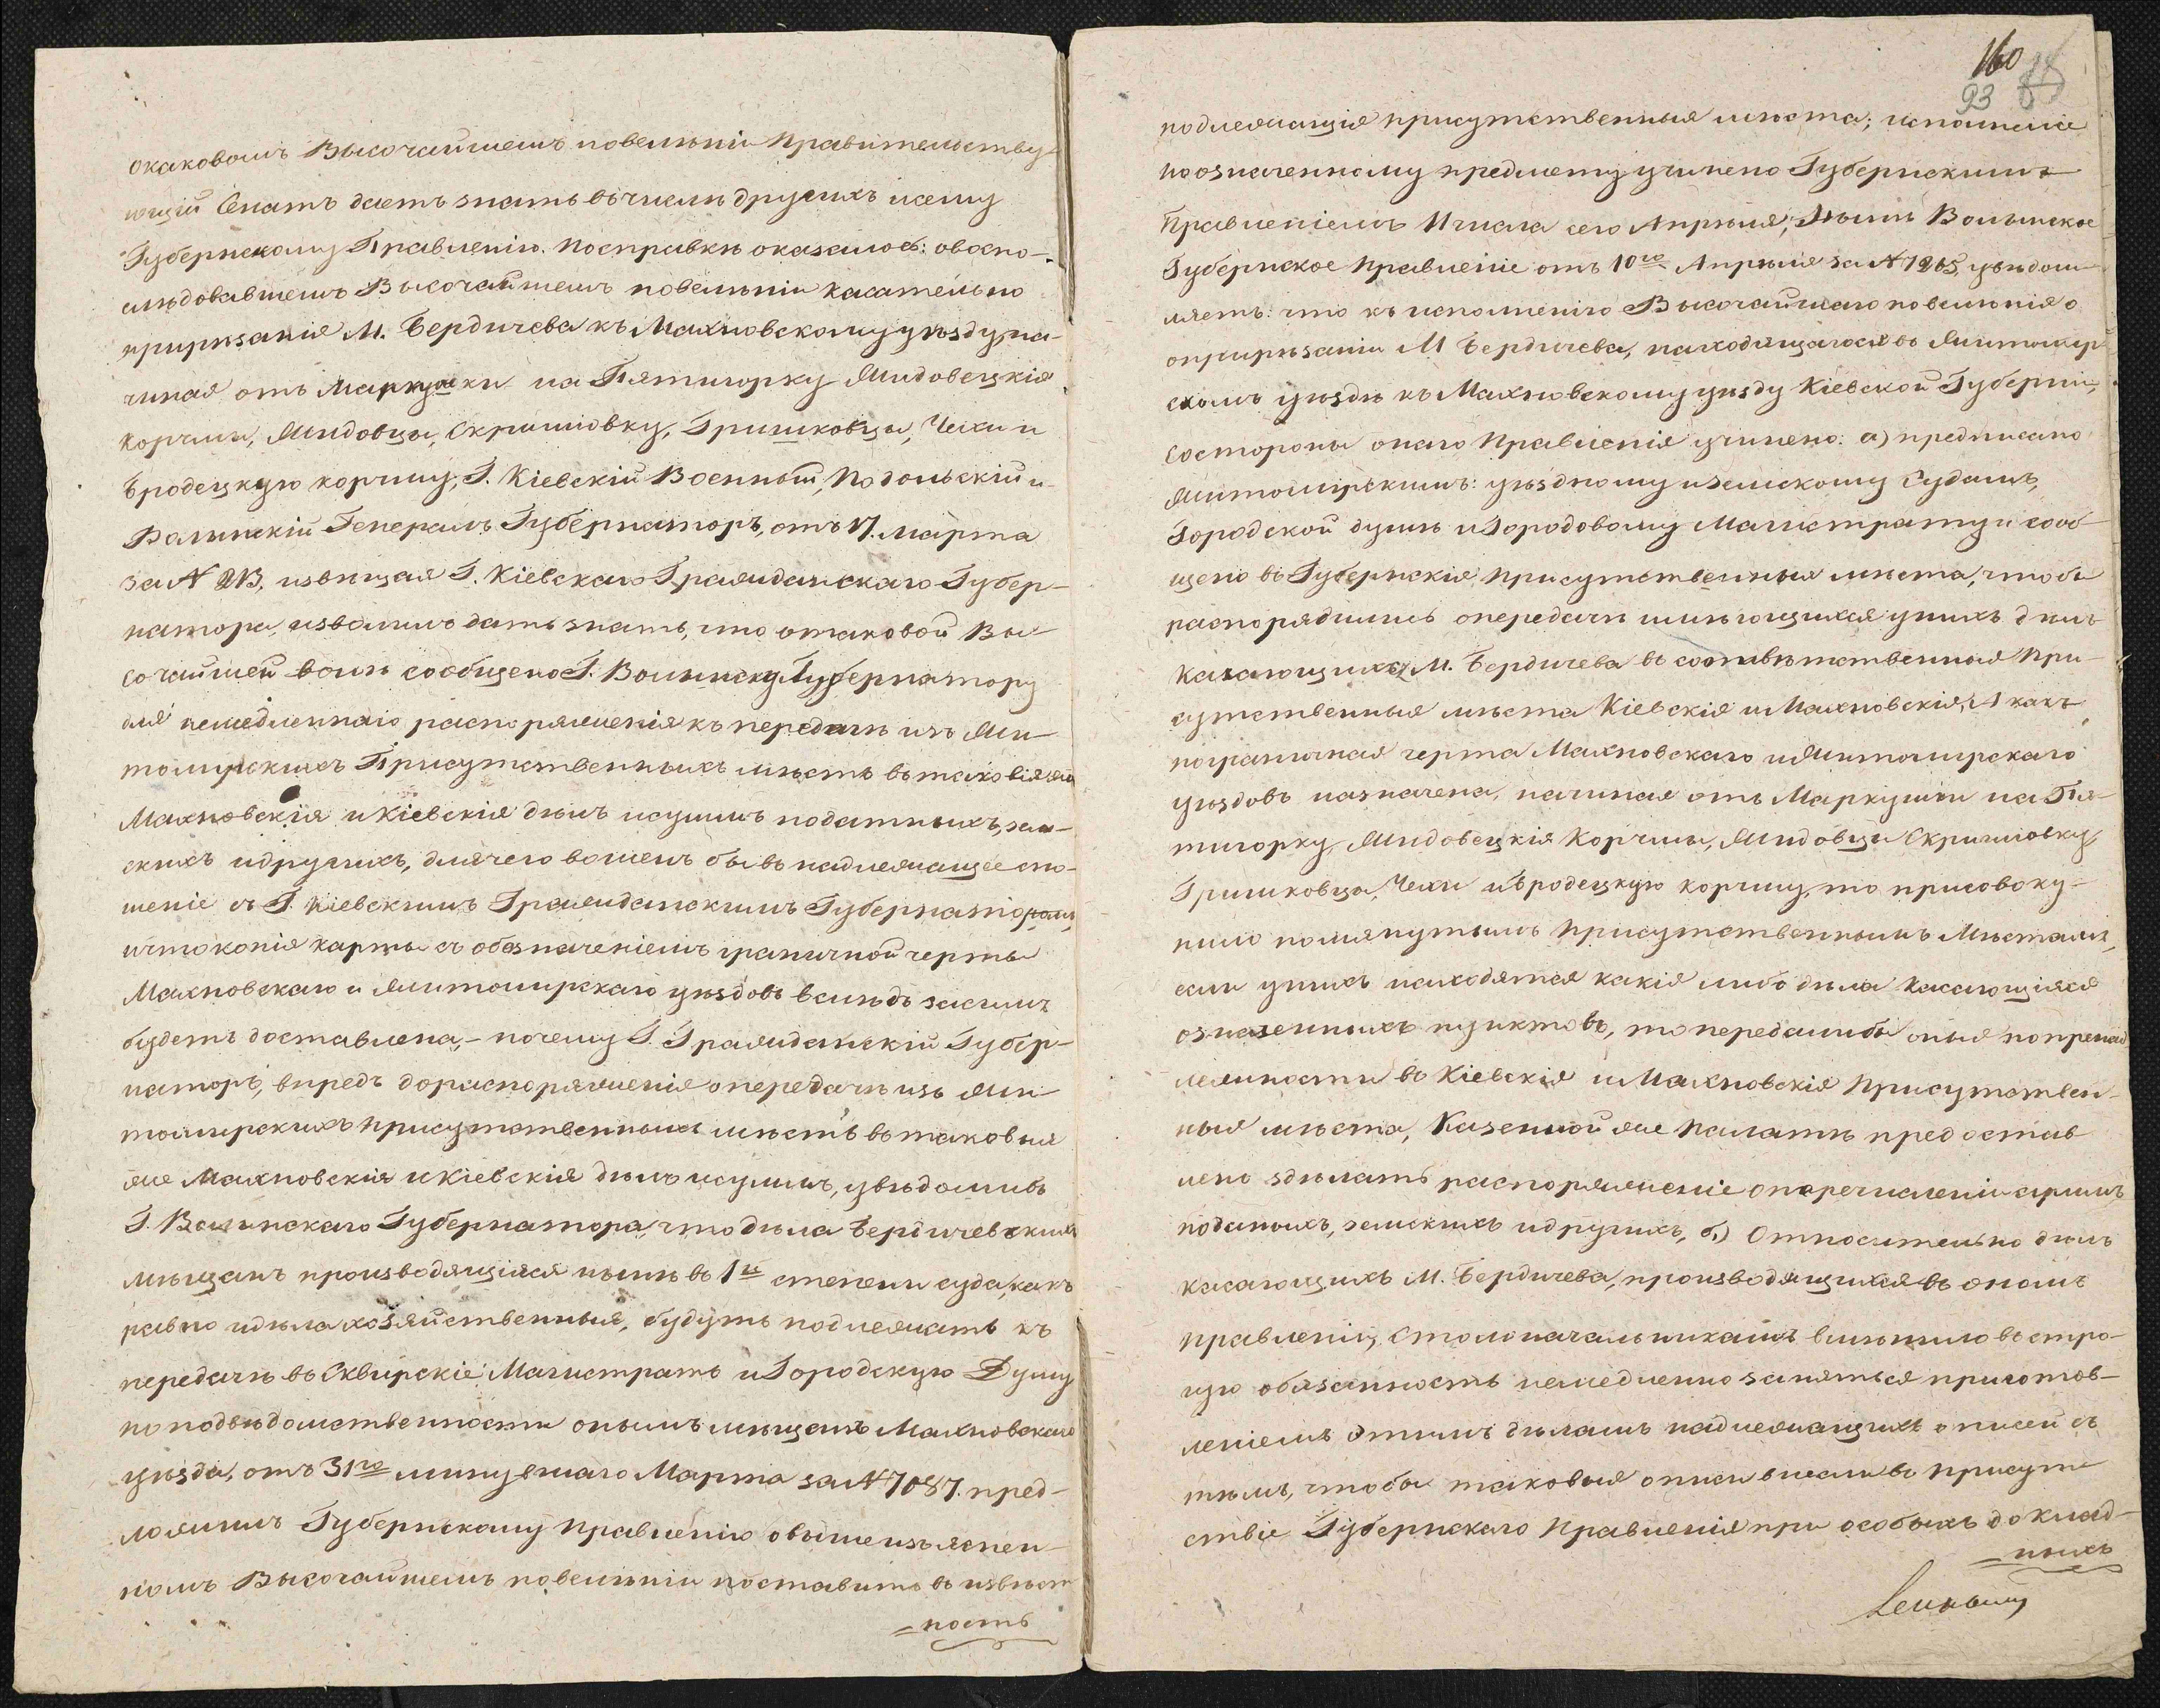 окаковомъ Высочайшемъ повелѣніи Правительству-
ющій Сенатъ даетъ знать въ числѣ другихъ исему
Губернскому Правленію. Посправкѣ оказалось: овоспо-
слѣдовавшемъ Высочайшемъ повелѣніи касательно
прирѣзанія М. Бердичева къ Махновскому уѣзду, на-
чиная отъ Маркушки на Пятигорку Жидовецкія
Корчмы, Жидовцы, Скришовку, Гришковцы, Чехи и
Бродецкую корчму, Г. Кіевскій Военный, Подольскій и
Волынскій Генералъ Губернаторъ, отъ 17. марта
за № 213, извѣщая Г. Кіевскаго Гражданскаго Губер-
натора, изволилъ дать знать, что отаковой Вы-
сочайшей волѣ сообщено Г. Волынску Губернатору
для немедленнаго распоряженія къ передачѣ изъ Жи-
томирскихъ Присутственныхъ мѣстъ въ таковыя же
Махновскія и Кіевскія дѣлъ исуммъ податныхъ, зем-
скихъ идругихъ, для чего вошелъ бы въ надлежащее сно-
шеніе съ Г. Кіевскимъ Гражданскимъ Губернаторомъ,
ичто копія карты съ обозначеніемъ граничной черты
Махновскаго и Житомирскаго уѣздовъ вслѣдъ засимъ
будетъ доставлена, – почему Г. Гражданскій Губер-
наторъ, впредъ дораспоряженія опередачѣ изъ Жи-
томирскихъ присутственныхъ мѣстъ въ таковыя
же Махновскія и Кіевскія дѣлъ исуммъ, увѣдомивъ
Г. Волынскаго Губернатора, что дѣла Бердичевскихъ
мѣщанъ производящіяся нынѣ въ 1й степени суда, какъ
равно идѣла хозяйственныя, будутъ подлежать къ
передачѣ въ Сквирскіе Магистратъ и Городскую Думу
по подвѣдомственности онымъ мѣщанъ Махновскаго
уѣзда, отъ 31го минувшаго Марта за № 7087. пред-
ложилъ Губернскому Правленію овышеизъяснен-
номъ Высочайшемъ повелѣніи поставить въ извѣст
=ность
160
93
подлежащія присутственныя мѣста; исполненіе
поозначенному предмету учинено Губернскимъ
Правленіемъ 11 числа сего Апрѣля; Нынѣ Волынское
Губернское Правленіе отъ 10го Апрѣля за № 1265, увѣдом
ляетъ: что къ исполненію Высочайшаго повелѣнія о
оприрѣзаніи М Бердичева, находящагося въ Житомир
скомъ уѣздѣ къ Махновскому уѣзду Кіевской Губерніи,
состороны онаго Правленія учинено: а) предписано
Житомирскимъ: уѣздному и земскому Судамъ,
Городской думѣ и Городовому Магистрату и сооб-
щено въ Губернскія Присутственныя мѣста, чтобы
распорядились опередачѣ имѣющихся уних дѣлъ
касающихся М. Бердичева въ соотвѣтственныя При-
сутственныя мѣста Кіевскія и Махновскія, А какъ
пограничная черта Махновскаго и Житомирскаго
уѣздовъ назначена, начиная отъ Маркушки на Пя-
тигорку, Жидовецкія Корчмы, Жидовцы Скришовку,
Гришковцы, Чехи и Бродецкую корчму, то присовоку-
пило помянутымъ Присутственнымъ Мѣстамъ,
если уних находятся какія либо дѣла касающіяся
означенныхъ пунктовъ, то передали бы оныя попринад
лежности въ Кіевскія и Махновскія Присутствен-
ныя мѣста, Казенной же Палатѣ предостав
лено здѣлать распоряженіе оперечисленіи суммъ
податныхъ, земскихъ идругихъ, б,) Относительно дѣлъ
касающихъ М. Бердичева, производящихся въ ономъ
Правленіи, Столоначальникамъ вмѣнило въ стро-
гую обязанность немедленно заняться приготов-
леніемъ этимъ дѣламъ надлежащихъ описей съ
тѣмъ, чтобы таковыя описи внесли въ Присут-
ствіе Губернскаго Правленія при особыхъ доклад-
=ныхъ